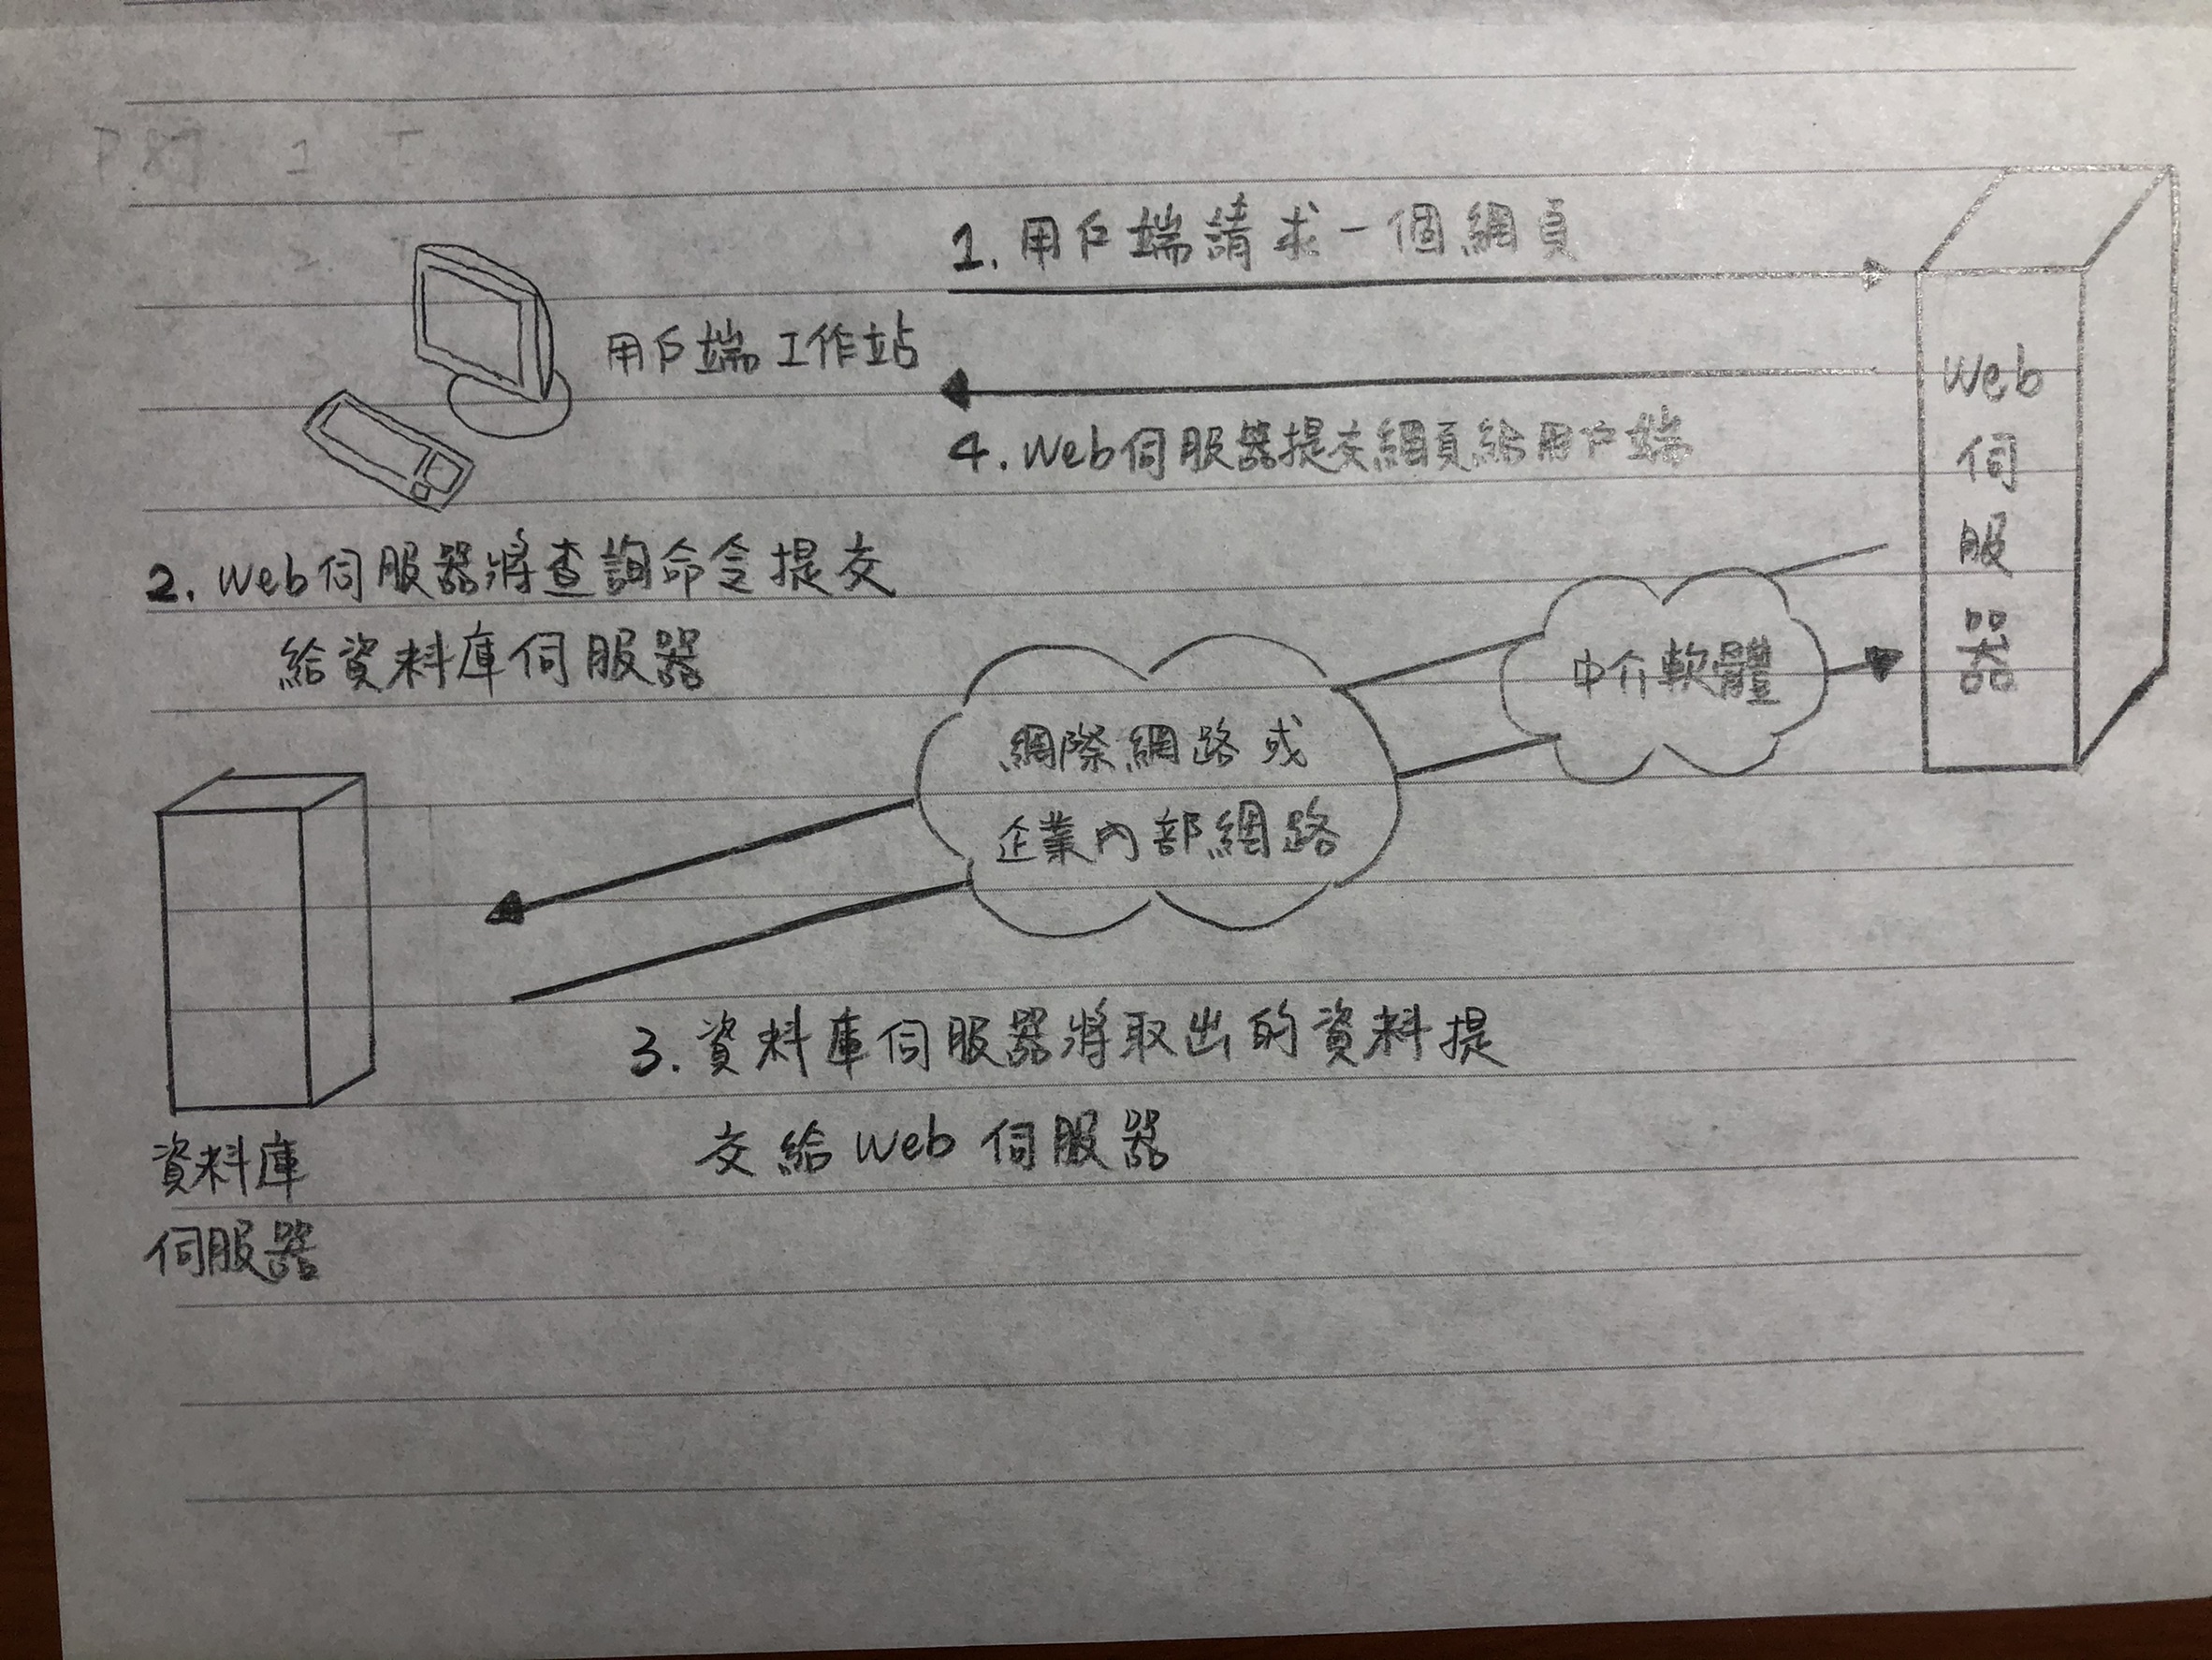 1. 用戶端請求一個網頁
用戶端工作站
4. Web伺服器提交網頁給用戶端
Web
伺
服
器
2. Web伺服器將查詢命令提交
給資料庫伺服器
中介軟體
網際網路或
企業內部網路
3. 資料庫伺服器將取出的資料提
交給 Web 伺服器
資料庫
伺服器